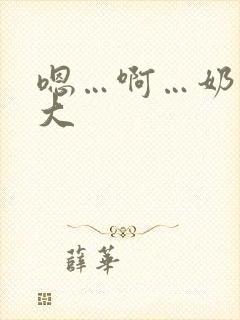 嗯…啊…奶
大
薛華